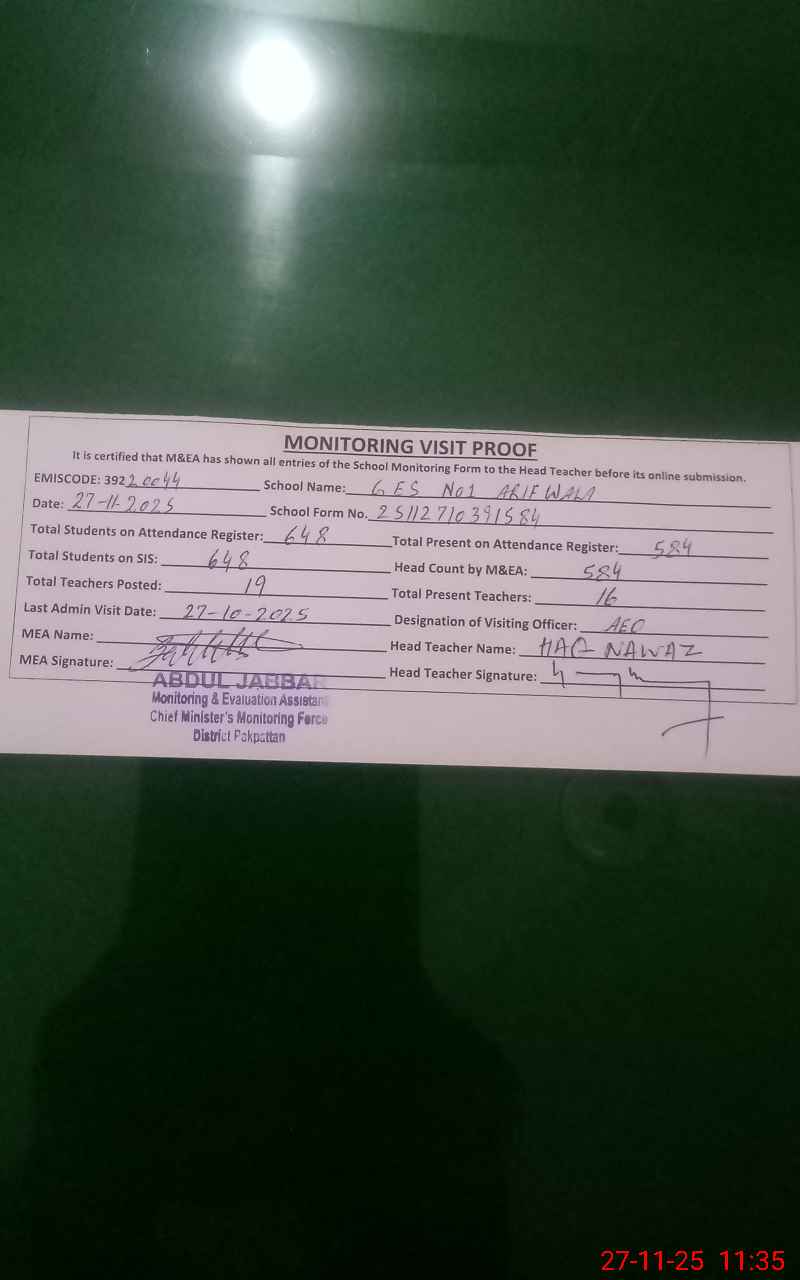 MONITORING VISIT PROOF
It is certified that M&EA has shown all entries of the School Monitoring Form to the Head Teacher before its online submission.
EMISCODE: 39220044 School Name: GES No1 ARIFWALA
Date: 27-11-2025 School Form No. 25112710391584
Total Students on Attendance Register: 648 Total Present on Attendance Register: 584
Total Students on SIS: 648 Head Count by M&EA: 584
Total Teachers Posted: 19 Total Present Teachers: 16
Last Admin Visit Date: 27-10-2025 Designation of Visiting Officer: AEO
MEA Name: Head Teacher Name: HAQ NAWAZ
MEA Signature: Head Teacher Signature:
ABDUL JABBAR
Monitoring & Evaluation Assistant
Chief Minister's Monitoring Force
District Pakpattan
27-11-25 11:35